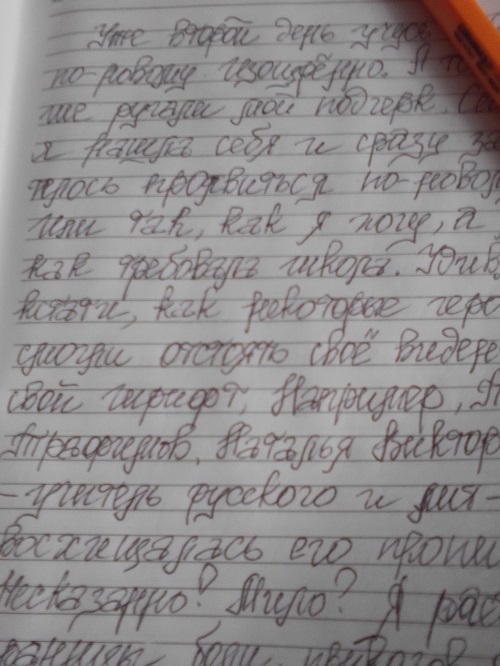 Уже второй день учусь
по-новому изощрённо. Я
же ругали мой подчерк.
я нашла себя и сразу за
телось проявиться по-ново
или так, как я могу, а
как требовала школа. Удив
кстати, как некоторые геро
смогли отстоять своё виде
свой шрифт. Например,
Трафимов. Наталья Виктор
-учитель русского и лит-
восхищалась его пропи
Несказанно? Мило? Я рас